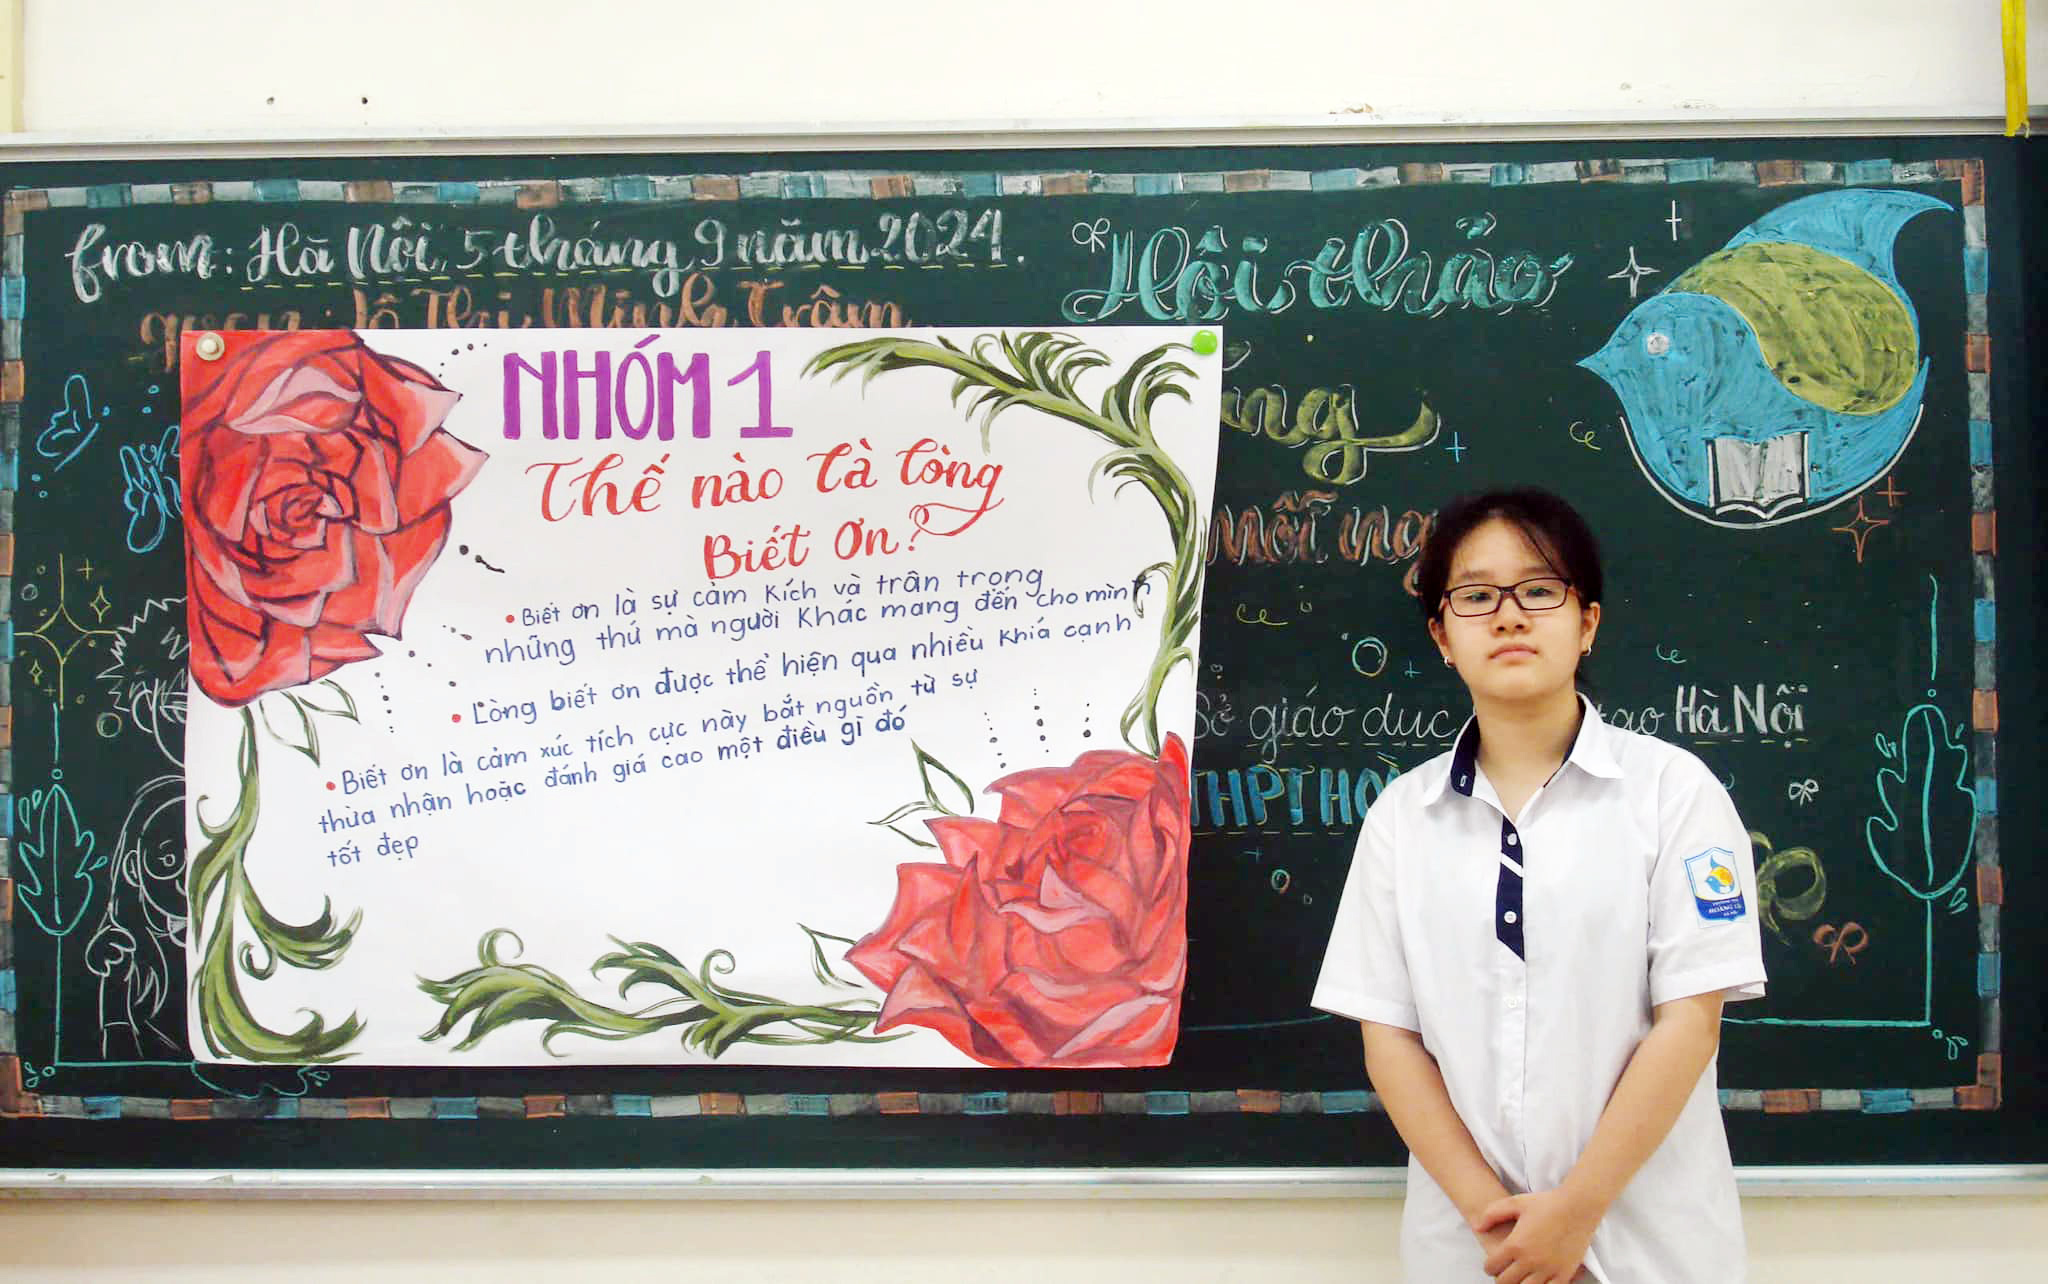 from: Hà Nội, 5 tháng 9 năm 2024.
Thị Minh Trâm
Hội thảo
NHÓM 1
Thế nào là lòng
Biết ơn?
• Biết ơn là sự cảm kích và trân trọng
những thứ mà người khác mang đến cho mình
• Lòng biết ơn được thể hiện qua nhiều khiá cạnh
• Biết ơn là cảm xúc tích cực này bắt nguồn từ sự
thừa nhận hoặc đánh giá cao một điều gì đó
tốt đẹp
mỗi
Sở giáo dục tạo Hà Nội
THPT